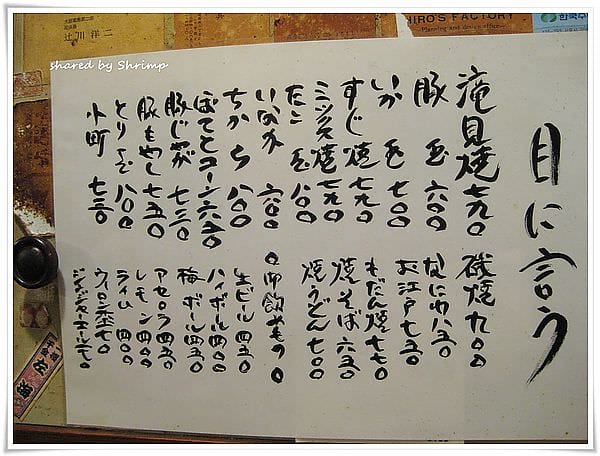 shared by Shrimp
辻川 洋二
HIRO'S FACTORY
Planning and design office
目に言う
滝見焼 七九〇
豚玉 六〇〇
いか玉 七〇〇
すじ焼 七九〇
ミックス焼 七九〇
たこ玉 八〇〇
いなか 六〇〇
ちから 八〇〇
ぽてとコーン 六五〇
豚じゃが 七三〇
豚もやし 七五〇
とり玉 八〇〇
小町 七三〇
磯焼 九〇〇
なにわ 八五〇
お江戸 七五〇
もだん焼 七七〇
焼そば 六五〇
焼うどん 七〇〇
〇御飲みもの〇
生ビール 四五〇
ハイボール 四〇〇
梅ボール 四五〇
アセロラ 四五〇
レモン 四〇〇
ライム 四〇〇